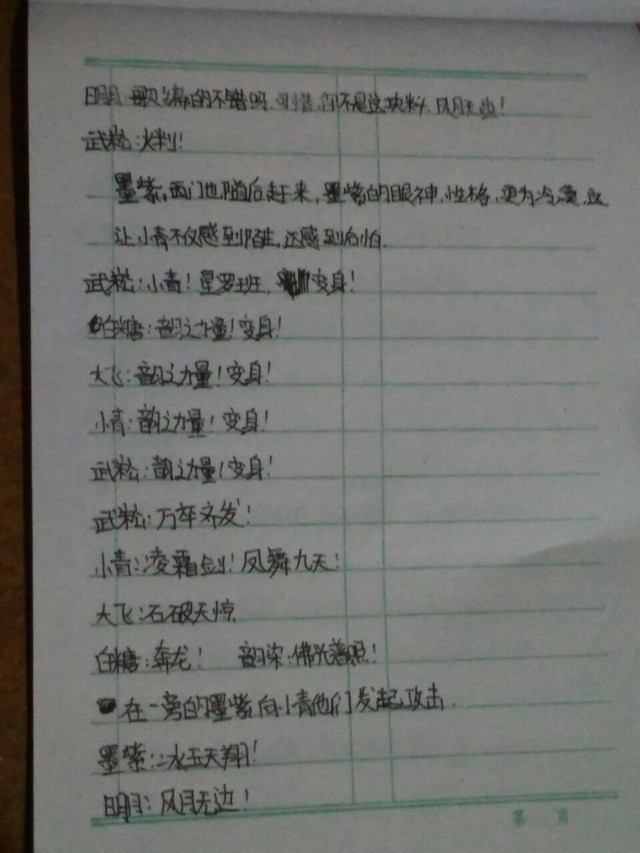 明月:歌编的不错吗,可惜,你不是这块料,风月无边!
武松:火判!
墨紫,西门也随后赶来,墨紫的眼神,性格,更为冷漠,这
让小青不仅感到陌生,还感到后怕.
武松:小青!星罗班,变身!
白糖:韵之力量!变身!
大飞:韵之力量!变身!
小青:韵之力量!变身!
武松:韵之力量!变身!
武松:万卒齐发!
小青:凌霜剑!凤舞九天!
大飞:石破天惊
白糖:奔龙! 韵染:佛光普照!
在一旁的墨紫向小青他们发起攻击.
墨紫:冰玉天翔!
明月:风月无边!
第 页